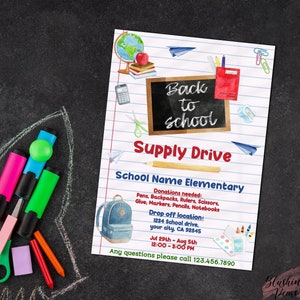 Back
to
school
Supply Drive
School Name Elementary
Donations needed:
Pens, Backpacks, Rulers, Scissors,
Glue, Markers, Pencils, Notebooks
Drop off location:
1234 School drive,
your city, CA 92345
Jul 29th - Aug 5th
12:00 - 5:00 PM
Any questions please call 123.456.7890